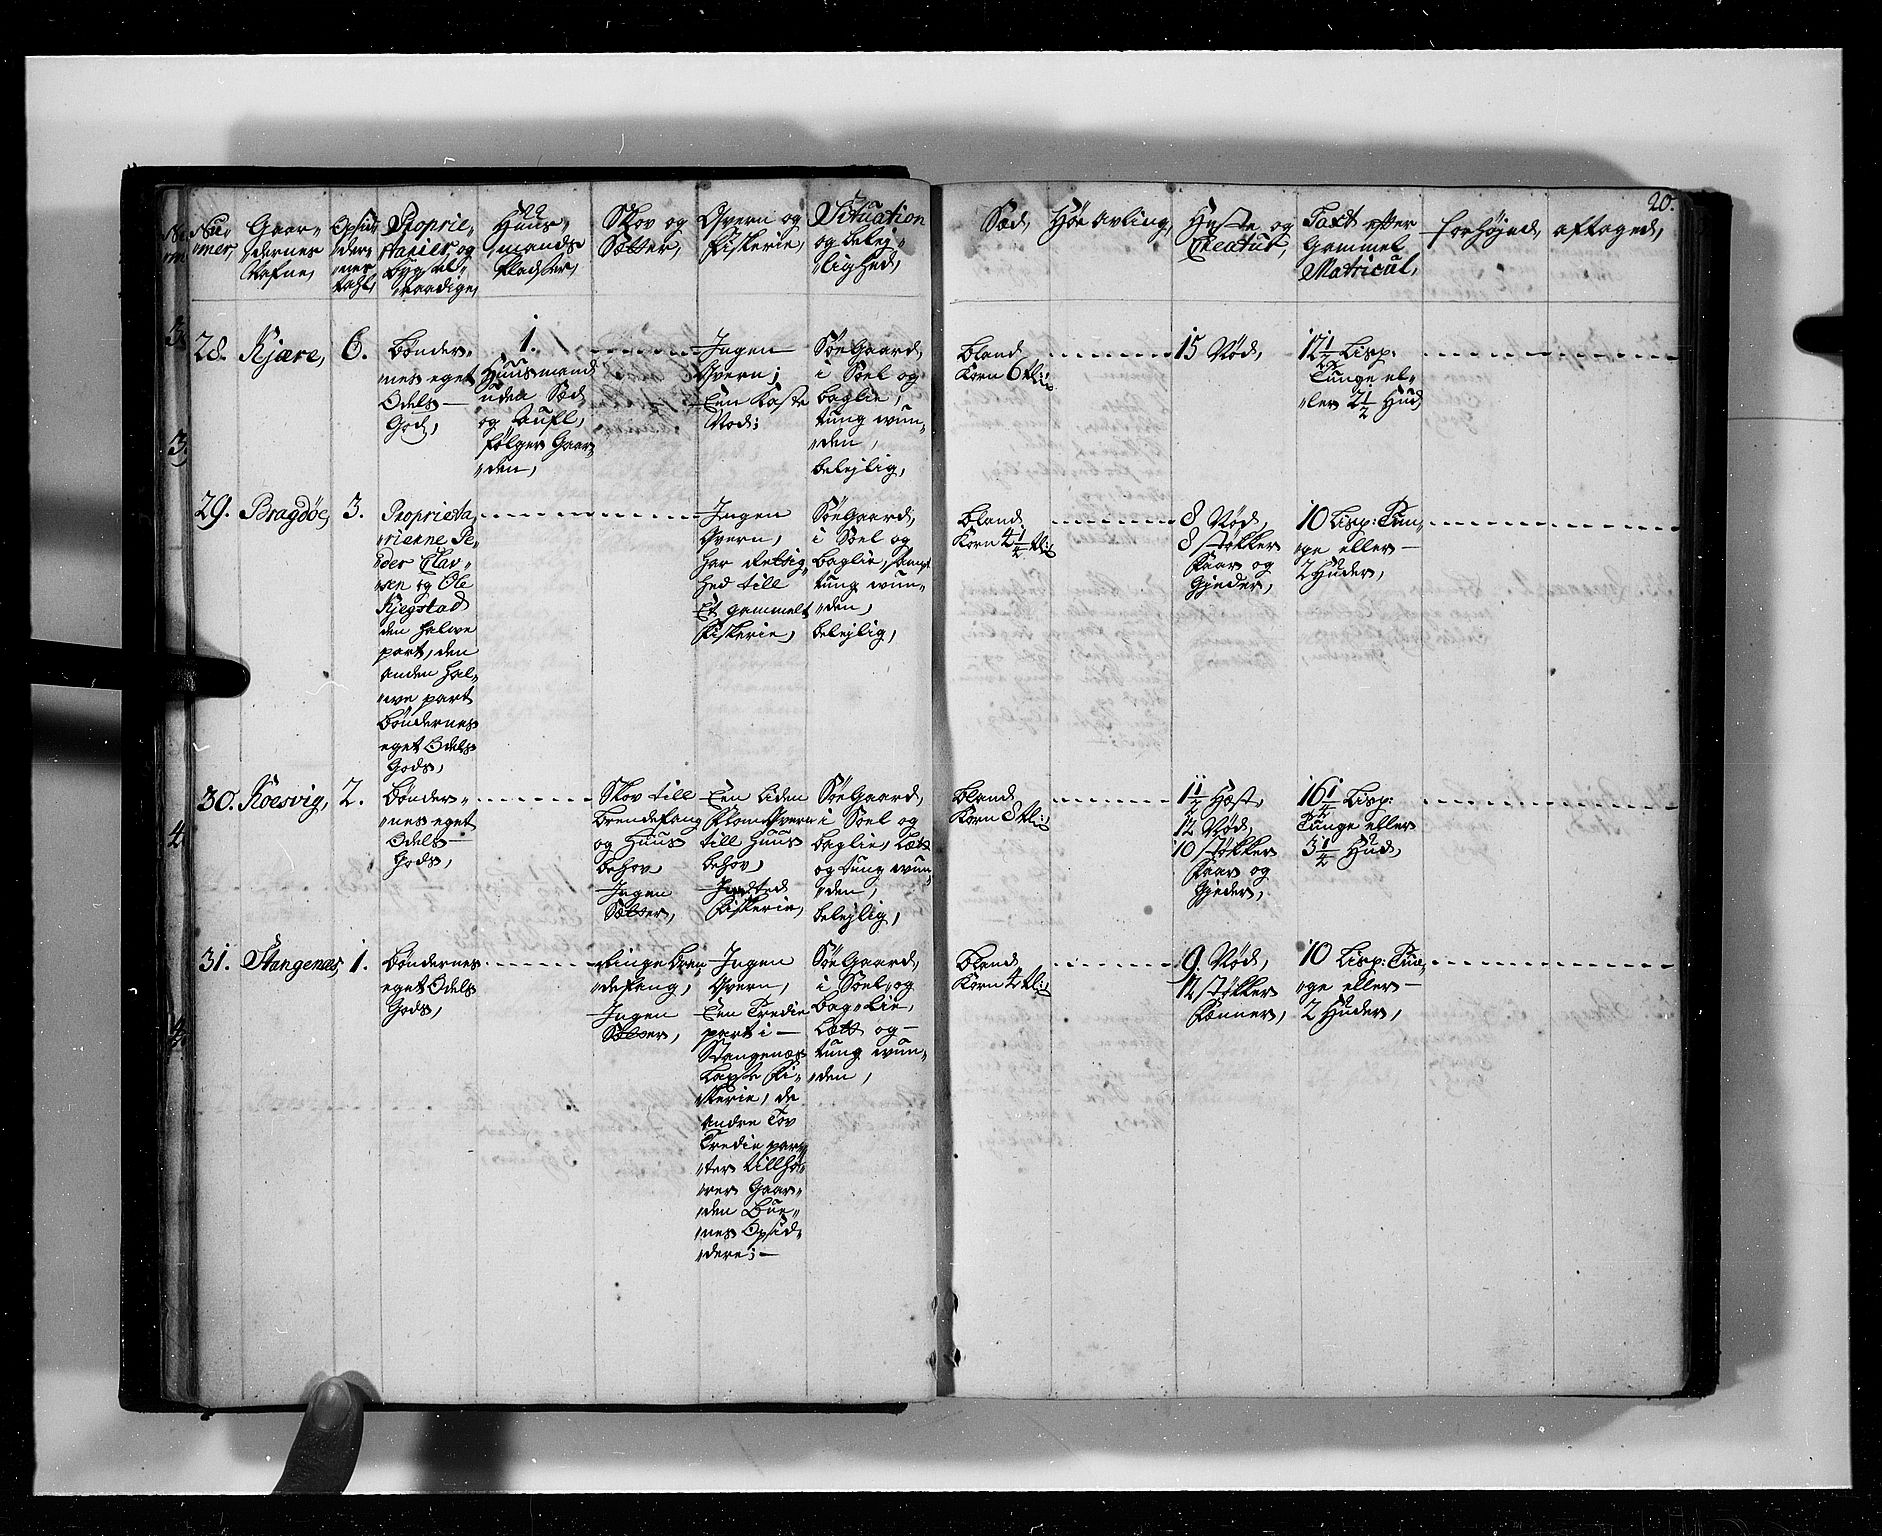 20.
Nu,,
mer,
Gaar,,
,,dernes
Nafne,
Opsid,,
,,der,,
,,nes
tahl,
Proprie,,
,,tarier, og
bygsel,,
,,raadige,
Huus,,
,,mands
Pladser,
Skov og
Sætter,
Qvern og
Fiskerie,
Situation
og belej,,
,,lighed,
Sæd,
Høe Avling,
Heste og
Creatur,
Taxt efter
Gammel
Matricul,
forhøjed,
aftaged,
28.
Kjære,
6.
Bønder,,
,,nes eget
Odels
God,
1.
Huusmand
uden Sæd
og
følger Gaar,,
,,den,
Ingen
Qvern;
Een kaste
Nod;
Søe Gaard,
i Soel og
baglie,
tung wun,,
,,den,
belejlig,
bland
Korn 6 tll:
15 Nød,
12 1/2 Lisp:
Tunge el,,
,,ler 2 1/2 Hud
29.
Bragdøe,
3.
Proprieta,,
,,rierne Pe,,
,,der Clav,,
,,sen og Ole
Kjegstad
den halwe
part, den
anden hal,,
,,we part
Bøndernes
eget Odels
Gods,
Ingen
Qvern,
har Retsig,,
hed till
Et gammelt
Fiskerie,
Søe Gaard,
i Soel og
baglie,
tung wun,,
,,den,
belejlig,
bland
Korn 4 1/4 tll:
8 Nød,
8 støkker
Faar og
Gjeder,
10 Lisp: Tun,,
,,ge eller
2 Huder,
30.
Roesvig,
2.
Bønder,,
,,nes eget
Odels
Gods,
Skov till
brendefang
og Huus
behov
Ingen
Sætter,
Een liden
Flom Qvern
till Huus
behov,
Fiskerie,
Søe Gaard,
i Soel og
baglie, Lætt
og tung wun,,
,,den,
belejlig,
bland
Korn 8 tll:
1 1/2 Hæst,
12 Nød,
10 støkker
Faar og
Gjeder,
16 1/4 Lisp:
Tunge eller
3 1/4 Hud,
31.
Stangenæs,
1.
Bøndernes
eget Odels
Gods,
Ringe bren
,,defang,
Ingen
Sætter,
Ingen
Qvern,
Een Tredie
part i
Stangenæs
Laxe Fi,,
skerie, de
andre Tov
Tredie par,,
,,ter tillhø,,
,,rer Gaar,,
,,den Bue,,
,,nes Opsid,,
,,dere;
Søe Gaard,
i Soel og
bag Lie,
Lætt og
tung wun,,
,,den,
bland
Korn 4 tll:
9 Nød,
14 støkker
Fænner,
10 Lisp: Tun,,
,,ge eller
2 Huder,